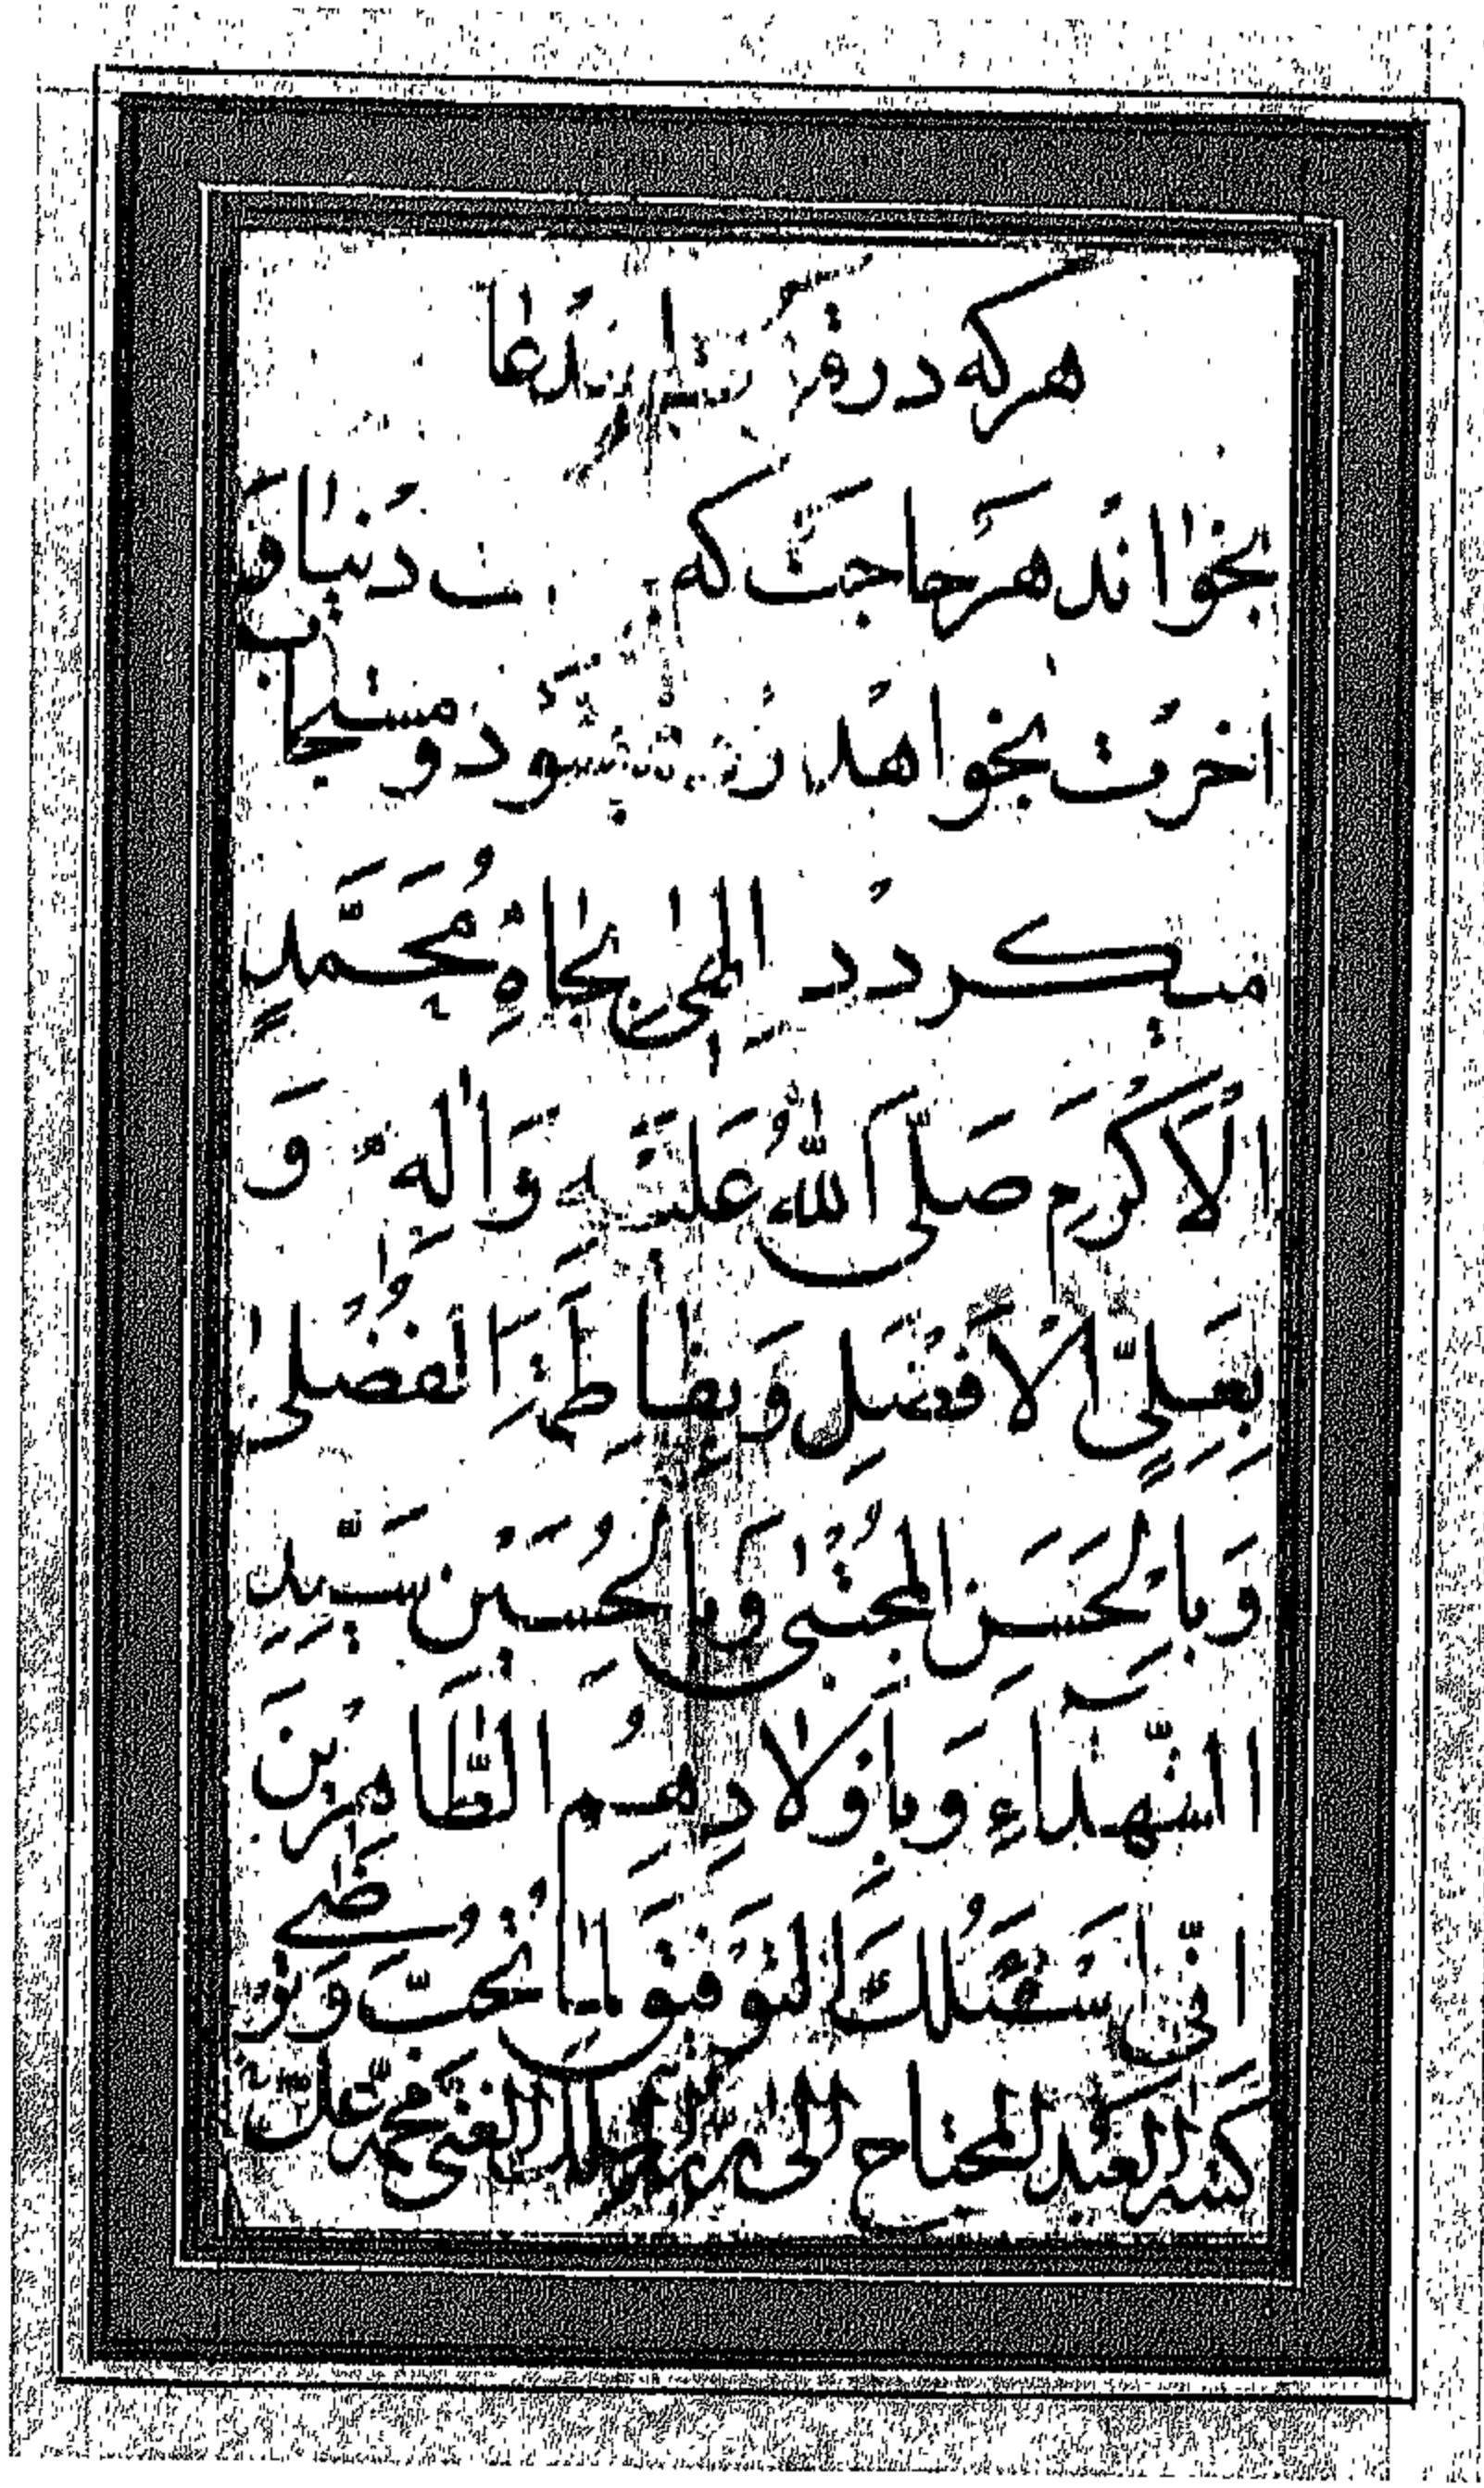 هر که در
بخواند هر حاجت که دنیا و
اخرت بخواهد شود و مستجاب
میکردد اِلهی بجاهِ مُحَمَّدٍ
الْاَکْرَمِ صَلَّی اللّٰهُ عَلَیْهِ وَاٰلِهِ وَ
بِعَلِیٍّ الْاَفْضَلِ وَبِفاطِمَةَ الفُضْلیٰ
وَبِالْحَسَنِ الْمُجْتَبٰی وَبِالْحُسَیْنِ سَیِّدِ
الشُّهَدآءِ وَبِاَوْلادِهِمِ الطَّاهِرِینَ
انّی اَسْئَلُکَ التَّوْفیقَ لِمٰا تُحِبُّ وَتَرْضٰی
کتبه العبد المحتاج الی الملک الغنی محمد علی